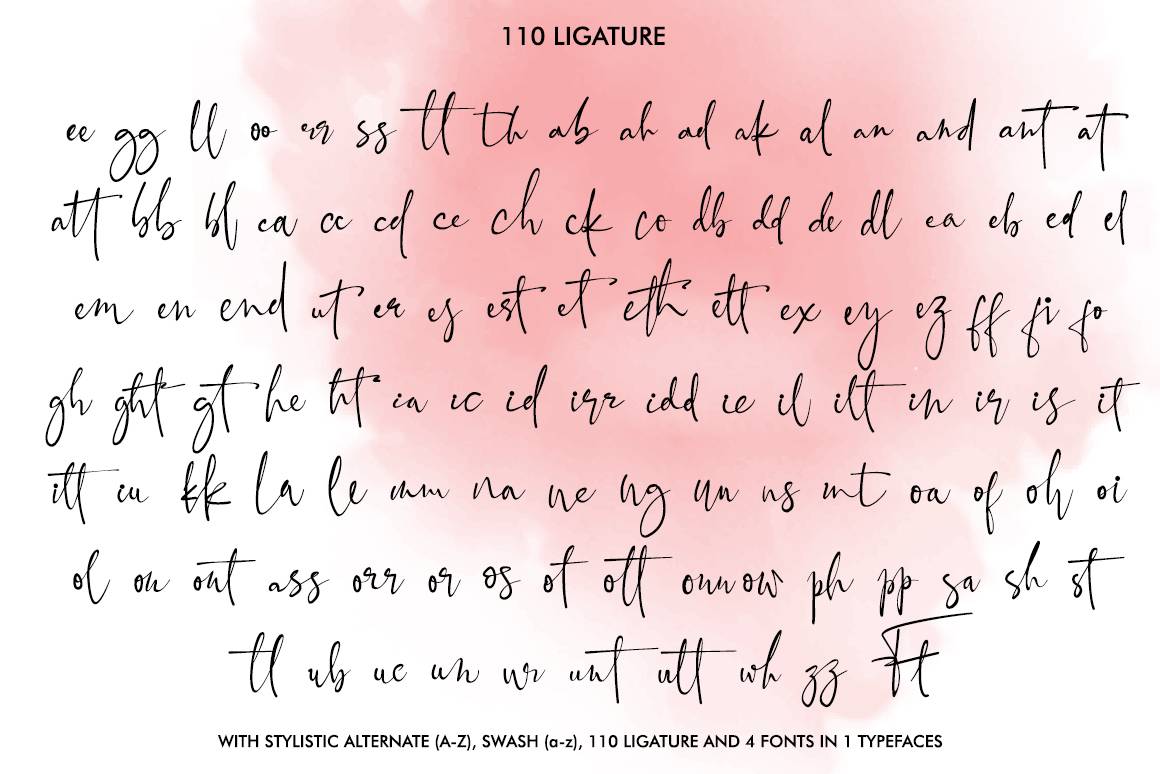 110 LIGATURE
ee gg ll oo rr ss tt th ab ah ad ak al an and ant at
att bb bl ca cc cd ce ch ck co db dd de dl ea eb ed el
em en end er es est et eth ett ex ey ez ff fi fo
gh ght gt he ht ia ic id irr idd ie il ilt in ir is it
itt iu kk la le mm na ne ng nn ns nt oa of oh oi
ol on ont ass orr or os ot ott ow ph pp sa sh st
tl ub uc un ur unt utt wh zz Ft
WITH STYLISTIC ALTERNATE (A-Z), SWASH (a-z), 110 LIGATURE AND 4 FONTS IN 1 TYPEFACES